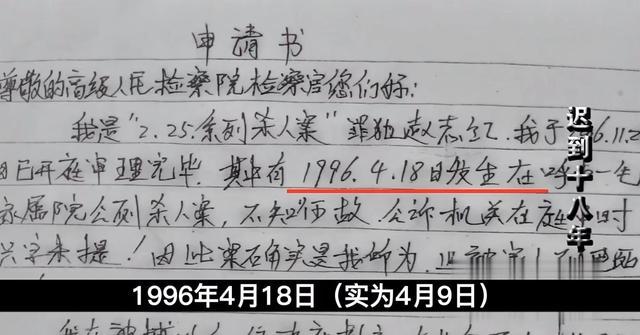 申请书
尊敬的高级人民检察院检察官您们好:
我是“2.25.系列杀人案”罪犯赵志红,我于 6.11.2
日已开庭审理完毕,其中有 1996.4.18日发生在呼一毛
家属院公厕杀人案,不知何故,公诉机关在庭 时
只字未提!因此案确实是我所为,
迟到十八年
1996年4月18日(实为4月9日)